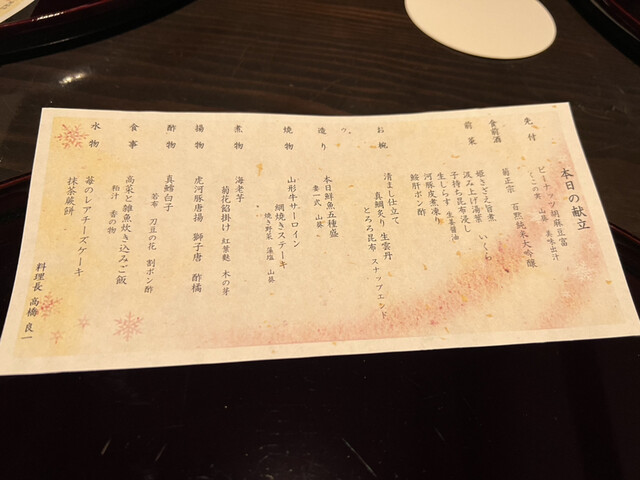 本日の献立
先付
ピーナッツ胡麻豆富
くこの実 山葵 美味出汁
食前酒
菊正宗 百黙純米大吟醸
前菜
姫さざえ旨煮 いくら
汲み上げ湯葉
子持ち昆布浸し
生しらす 生姜醤油
河豚皮煮凍り
鮟肝ポン酢
お椀
清まし仕立て
真鯛炙り 生雲丹
とろろ昆布 スナップエンド
ウ
造り
本日鮮魚五種盛
妻一式 山葵
焼物
山形牛サーロイン
網焼きステーキ
焼き野菜 藻塩 山葵
煮物
海老芋
菊花餡掛け 紅葉麩 木の芽
揚物
虎河豚唐揚 獅子唐 酢橘
酢物
真鱈白子
若布 刀豆の花 割ポン酢
食事
高菜と雑魚炊き込みご飯
粕汁 香の物
水物
苺のレアチーズケーキ
抹茶蕨餅
料理長 高橋良一